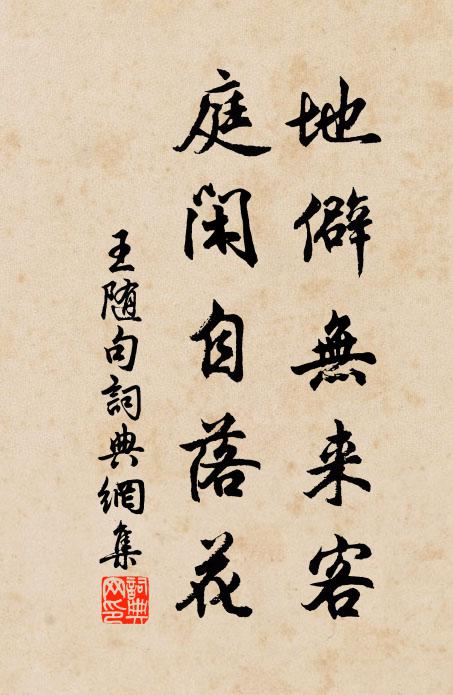 地僻無来客
庭閑自落花
王随句詞典網集
詞典網印